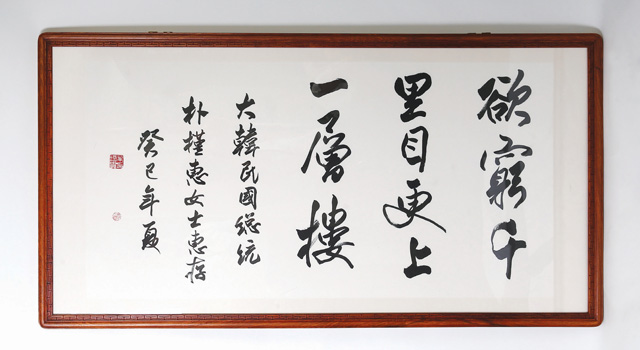 欲窮千
里目更上
一層樓
大韓民國总统
朴槿惠女士惠存
癸巳年夏